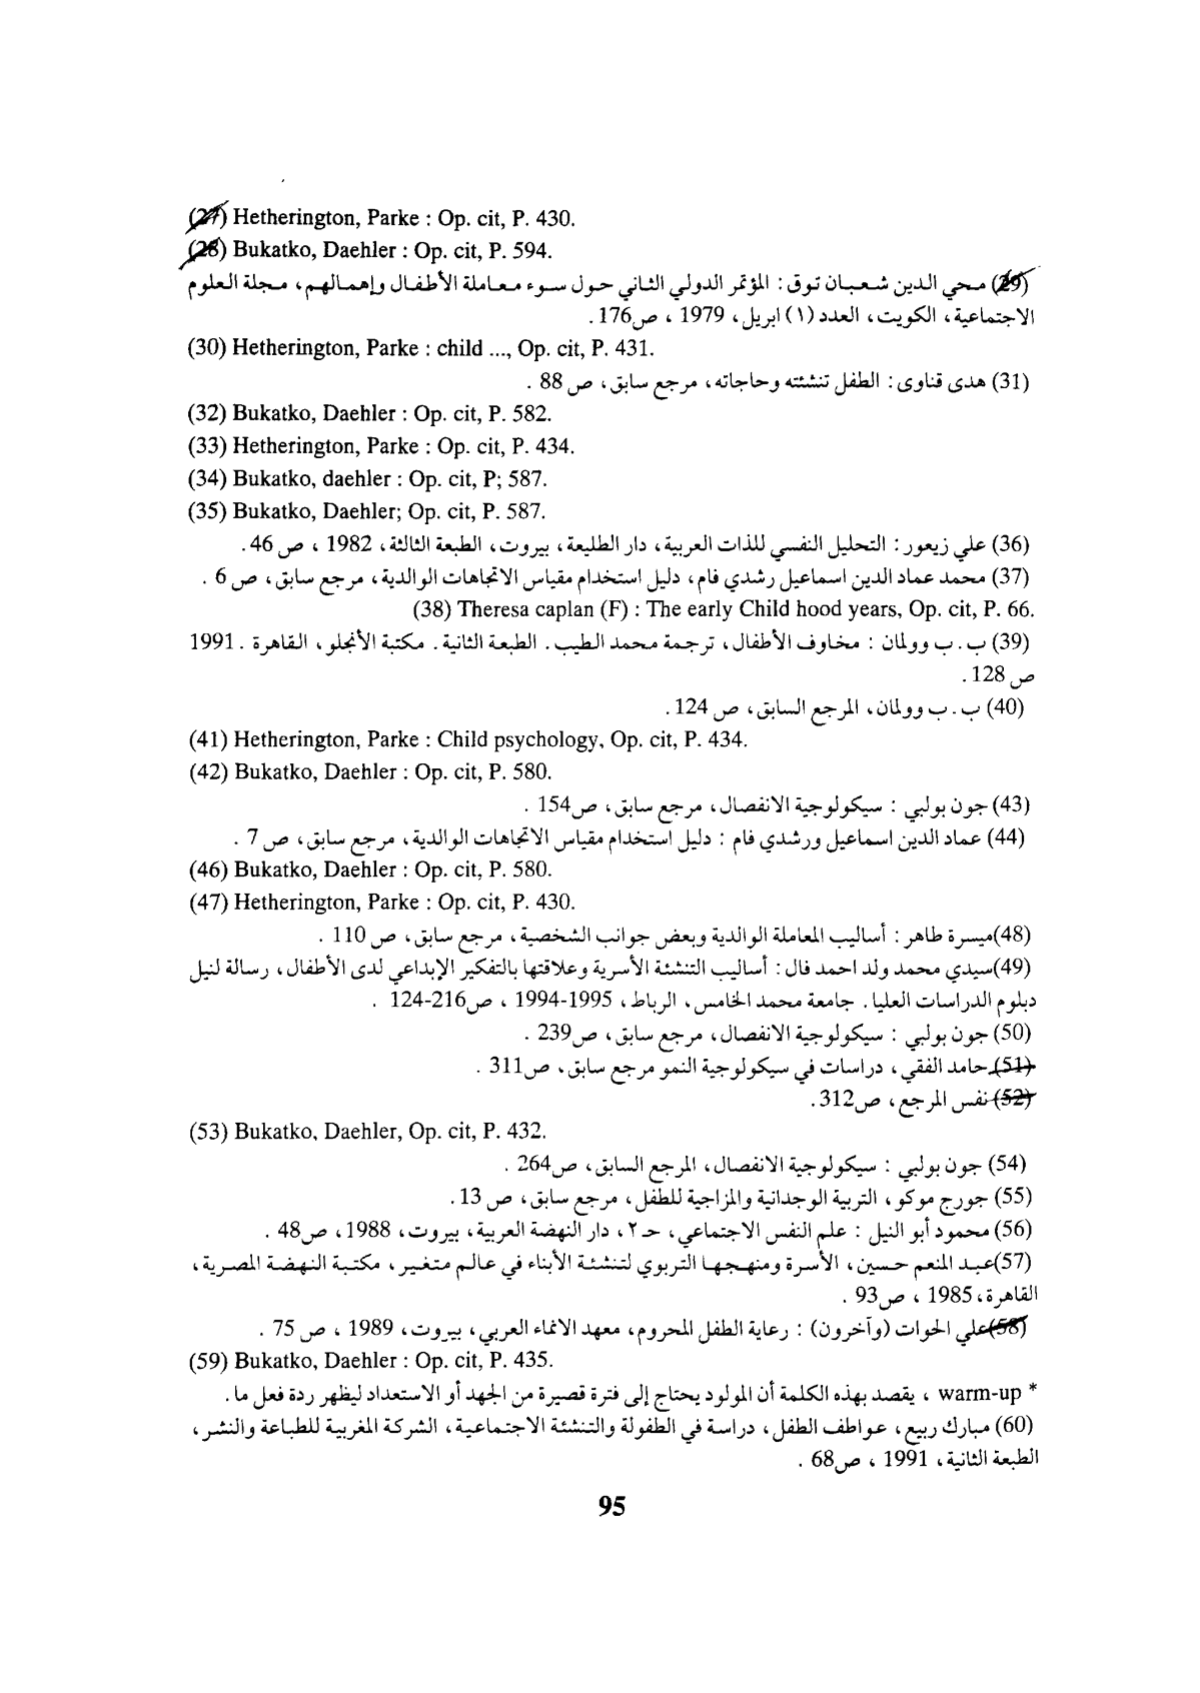 (27) Hetherington, Parke : Op. cit, P. 430.
(28) Bukatko, Daehler : Op. cit, P. 594.
(29) محي الدين شعبان توق : المؤتمر الدولي الثاني حول سوء معاملة الأطفال وإهمالهم، مجلة العلوم
الاجتماعية، الكويت، العدد (١) ابريل، 1979 ، ص176 .
(30) Hetherington, Parke : child ..., Op. cit, P. 431.
(31) هدى قناوى : الطفل تنشئته وحاجاته، مرجع سابق، ص 88 .
(32) Bukatko, Daehler : Op. cit, P. 582.
(33) Hetherington, Parke : Op. cit, P. 434.
(34) Bukatko, daehler : Op. cit, P; 587.
(35) Bukatko, Daehler; Op. cit, P. 587.
(36) علي زيعور : التحليل النفسي للذات العربية، دار الطليعة، بيروت، الطبعة الثالثة، 1982 ، ص 46 .
(37) محمد عماد الدين اسماعيل رشدي فام، دليل استخدام مقياس الاتجاهات الوالدية، مرجع سابق، ص 6 .
(38) Theresa caplan (F) : The early Child hood years, Op. cit, P. 66.
(39) ب . ب وولمان : مخاوف الأطفال، ترجمة محمد الطيب . الطبعة الثانية . مكتبة الأنجلو، القاهرة . 1991
ص 128 .
(40) ب . ب وولمان، المرجع السابق، ص 124 .
(41) Hetherington, Parke : Child psychology, Op. cit, P. 434.
(42) Bukatko, Daehler : Op. cit, P. 580.
(43) جون بولبي : سيكولوجية الانفصال، مرجع سابق، ص154 .
(44) عماد الدين اسماعيل ورشدي فام : دليل استخدام مقياس الاتجاهات الوالدية، مرجع سابق، ص 7 .
(46) Bukatko, Daehler : Op. cit, P. 580.
(47) Hetherington, Parke : Op. cit, P. 430.
(48)ميسرة طاهر : أساليب المعاملة الوالدية وبعض جوانب الشخصية، مرجع سابق، ص 110 .
(49)سيدي محمد ولد احمد فال : أساليب التنشئة الأسرية وعلاقتها بالتفكير الإبداعي لدى الأطفال، رسالة لنيل
دبلوم الدراسات العليا . جامعة محمد الخامس، الرباط، 1995-1994 ، ص216-124 .
(50) جون بولبي : سيكولوجية الانفصال، مرجع سابق، ص239 .
(51) حامد الفقي، دراسات في سيكولوجية النمو مرجع سابق، ص311 .
(52) نفس المرجع، ص312 .
(53) Bukatko, Daehler, Op. cit, P. 432.
(54) جون بولبي : سيكولوجية الانفصال، المرجع السابق، ص264 .
(55) جورج موكو، التربية الوجدانية والمزاجية للطفل، مرجع سابق، ص 13 .
(56) محمود أبو النيل : علم النفس الاجتماعي، حـ ٢، دار النهضة العربية، بيروت، 1988 ، ص48 .
(57)عبد المنعم حسين، الأسرة ومنهجها التربوي لتنشئة الأبناء في عالم متغير، مكتبة النهضة المصرية،
القاهرة، 1985 ، ص93 .
(58)علي الحوات (وآخرون) : رعاية الطفل المحروم، معهد الانماء العربي، بيروت، 1989 ، ص 75 .
(59) Bukatko, Daehler : Op. cit, P. 435.
* warm-up ، يقصد بهذه الكلمة أن المولود يحتاج إلى فترة قصيرة من الجهد أو الاستعداد ليظهر ردة فعل ما .
(60) مبارك ربيع، عواطف الطفل، دراسة في الطفولة والتنشئة الاجتماعية، الشركة المغربية للطباعة والنشر،
الطبعة الثانية، 1991 ، ص68 .
95